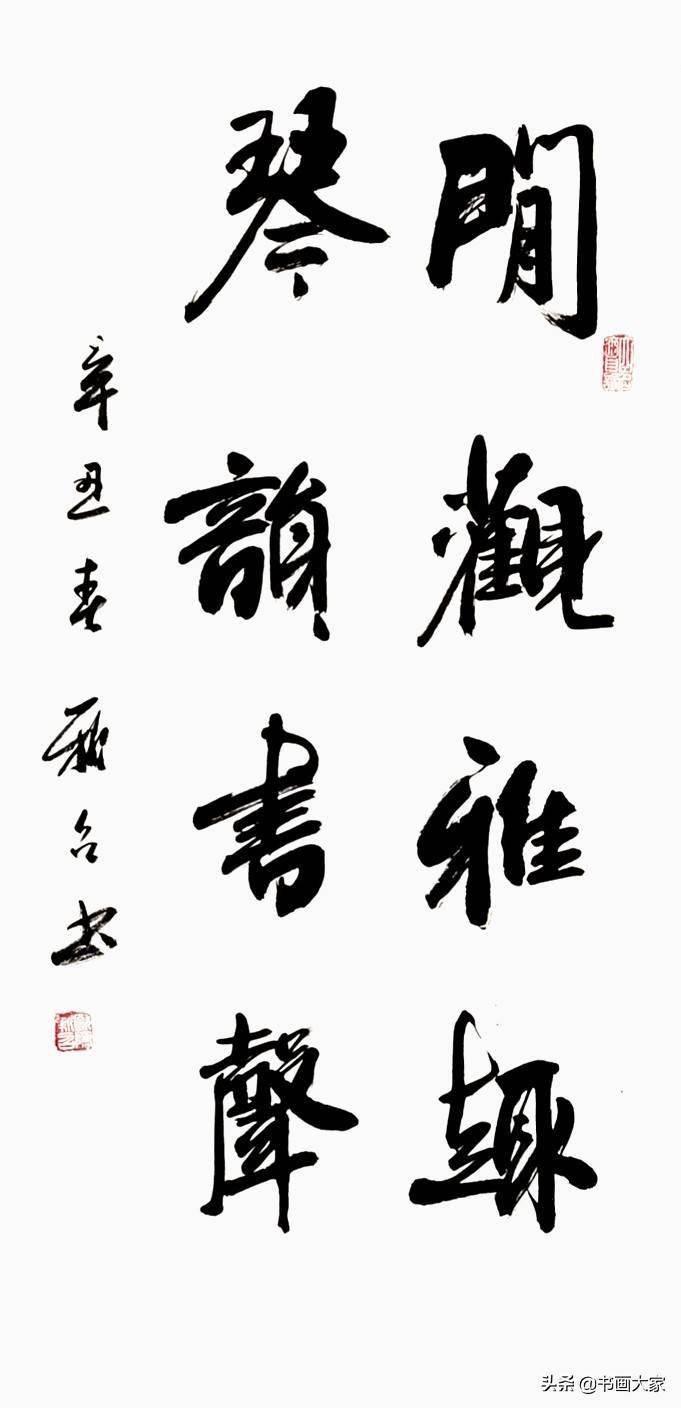 閒觀雅趣
琴韻書聲
辛丑春 召书
头条 @书画大家